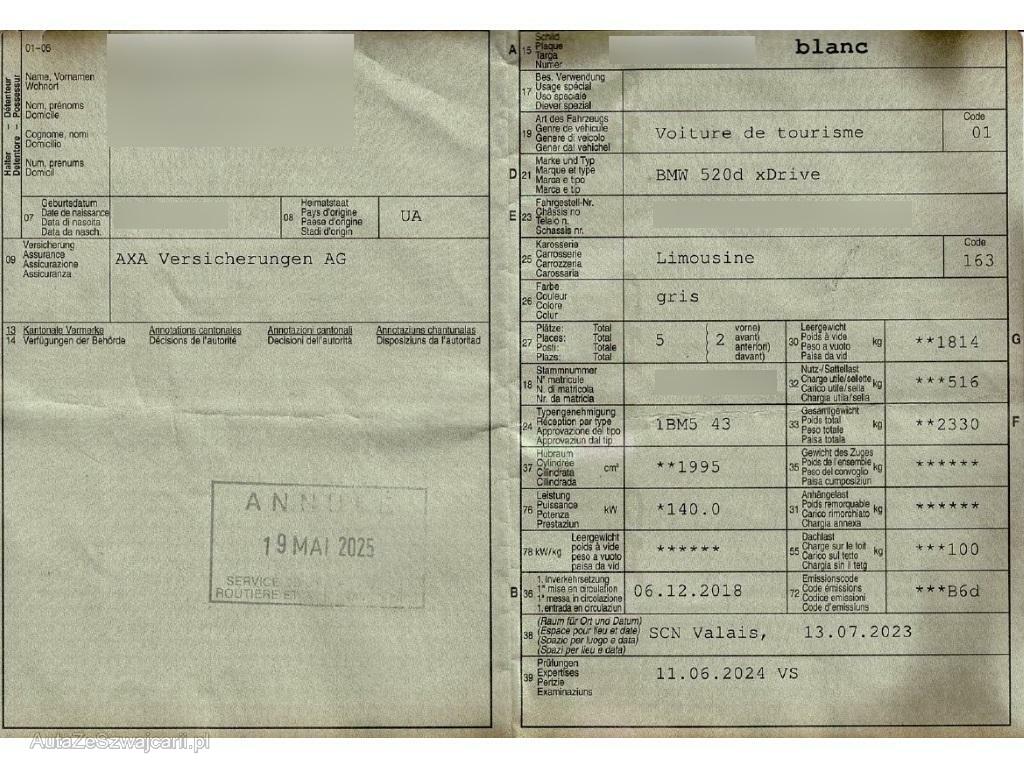 01-06
Halter – Détenteur
Detentore – Possessur
Name, Vornamen
Wohnort
Nom, prénoms
Domicile
Cognome, nomi
Domicilio
Num, prenums
Domicil
07
Geburtsdatum
Date de naissance
Data di nascita
Data da nasch.
08
Heimatstaat
Pays d'origine
Paese d'origine
Stadi d'origin
UA
09
Versicherung
Assurance
Assicurazione
Assicuranza
AXA Versicherungen AG
13 Kantonale Vermerke Annotations cantonales Annotazioni cantonali Annotaziuns chantunalas
14 Verfügungen der Behörde Décisions de l'autorité Decisioni dell'autorità Disposiziuns da l'autoritad
19 MAI 2025
SERVICE
ROUTIERE ET
A 15
Schild
Plaque
Targa
Numer
blanc
17
Bes. Verwendung
Usage spécial
Uso speciale
Diever spezial
19
Art des Fahrzeugs
Genre de véhicule
Genere di veicolo
Gener dal vehichel
Voiture de tourisme
Code
01
D 21
Marke und Typ
Marque et type
Marca e tipo
Marca e tip
BMW 520d xDrive
E 23
Fahrgestell-Nr.
Châssis no
Telaio n.
Schassis nr.
25
Karosserie
Carrosserie
Carrozzeria
Carossaria
Limousine
Code
163
26
Farbe
Couleur
Colore
Colur
gris
27
Plätze: Total
Places: Total
Posti: Totale
Plazs: Total
5
2
vorne)
avant)
anteriori)
davant)
30
Leergewicht
Poids à vide
Peso a vuoto
Paisa da vid
kg
**1814
G
18
Stammnummer
N° matricule
N. di matricola
Nr. da matricla
32
Nutz-/Sattellast
Charge utile/sellette
Carico utile/sella
Chargia utila/sella
kg
***516
24
Typengenehmigung
Réception par type
Approvazione del tipo
Approvaziun dal tip
1BM5 43
33
Gesamtgewicht
Poids total
Peso totale
Paisa totala
kg
**2330
F
37
Hubraum
Cylindrée
Cilindrata
Cilindrada
cm³
**1995
35
Gewicht des Zuges
Poids de l'ensemble
Peso del convoglio
Paisa cumposiziun
kg
******
76
Leistung
Puissance
Potenza
Prestaziun
kW
*140.0
31
Anhängelast
Poids remorquable
Carico rimorchiato
Chargia annexa
kg
******
78 kW/kg
Leergewicht
poids à vide
peso a vuoto
paisa da vid
******
55
Dachlast
Charge sur le toit
Carico sul tetto
Chargia sin il tetg
kg
***100
B 36
1. Inverkehrsetzung
1re mise en circulation
1a messa in circolazione
1. entrada en circulaziun
06.12.2018
72
Emissionscode
Code émissions
Codice emissioni
Code d'emissiuns
***B6d
38
(Raum für Ort und Datum)
(Espace pour lieu et date)
(Spazio per luogo e data)
(Spazi per lieu e data)
SCN Valais, 13.07.2023
39
Prüfungen
Expertises
Perizie
Examinaziuns
11.06.2024 VS
AutaZeSzwajcarii.pl